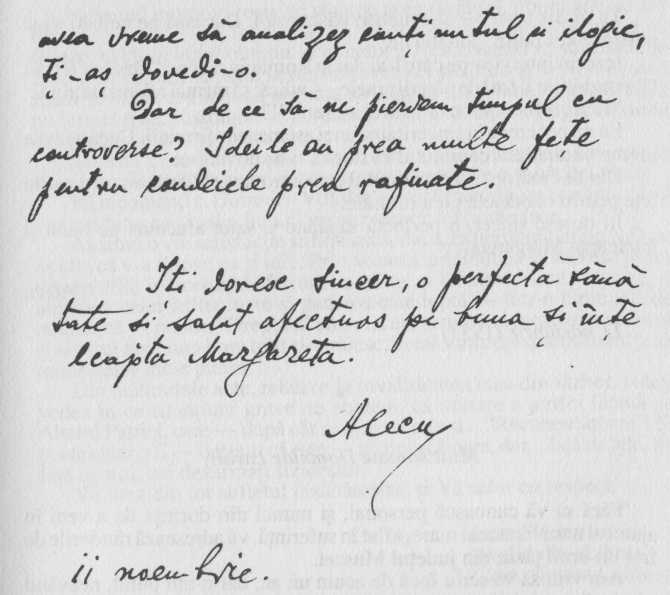 avea vreme să analizez conținutul și ilogic,
ți-aș dovedi-o.
Dar de ce să ne pierdem timpul cu
controverse? Ideile au prea multe fețe
pentru condeiele prea rafinate.
Iți doresc sincer, o perfectă sănă
tate și salut afectuos pe buna și înte
leapta Margareta.
Alecu
11 noembrie.